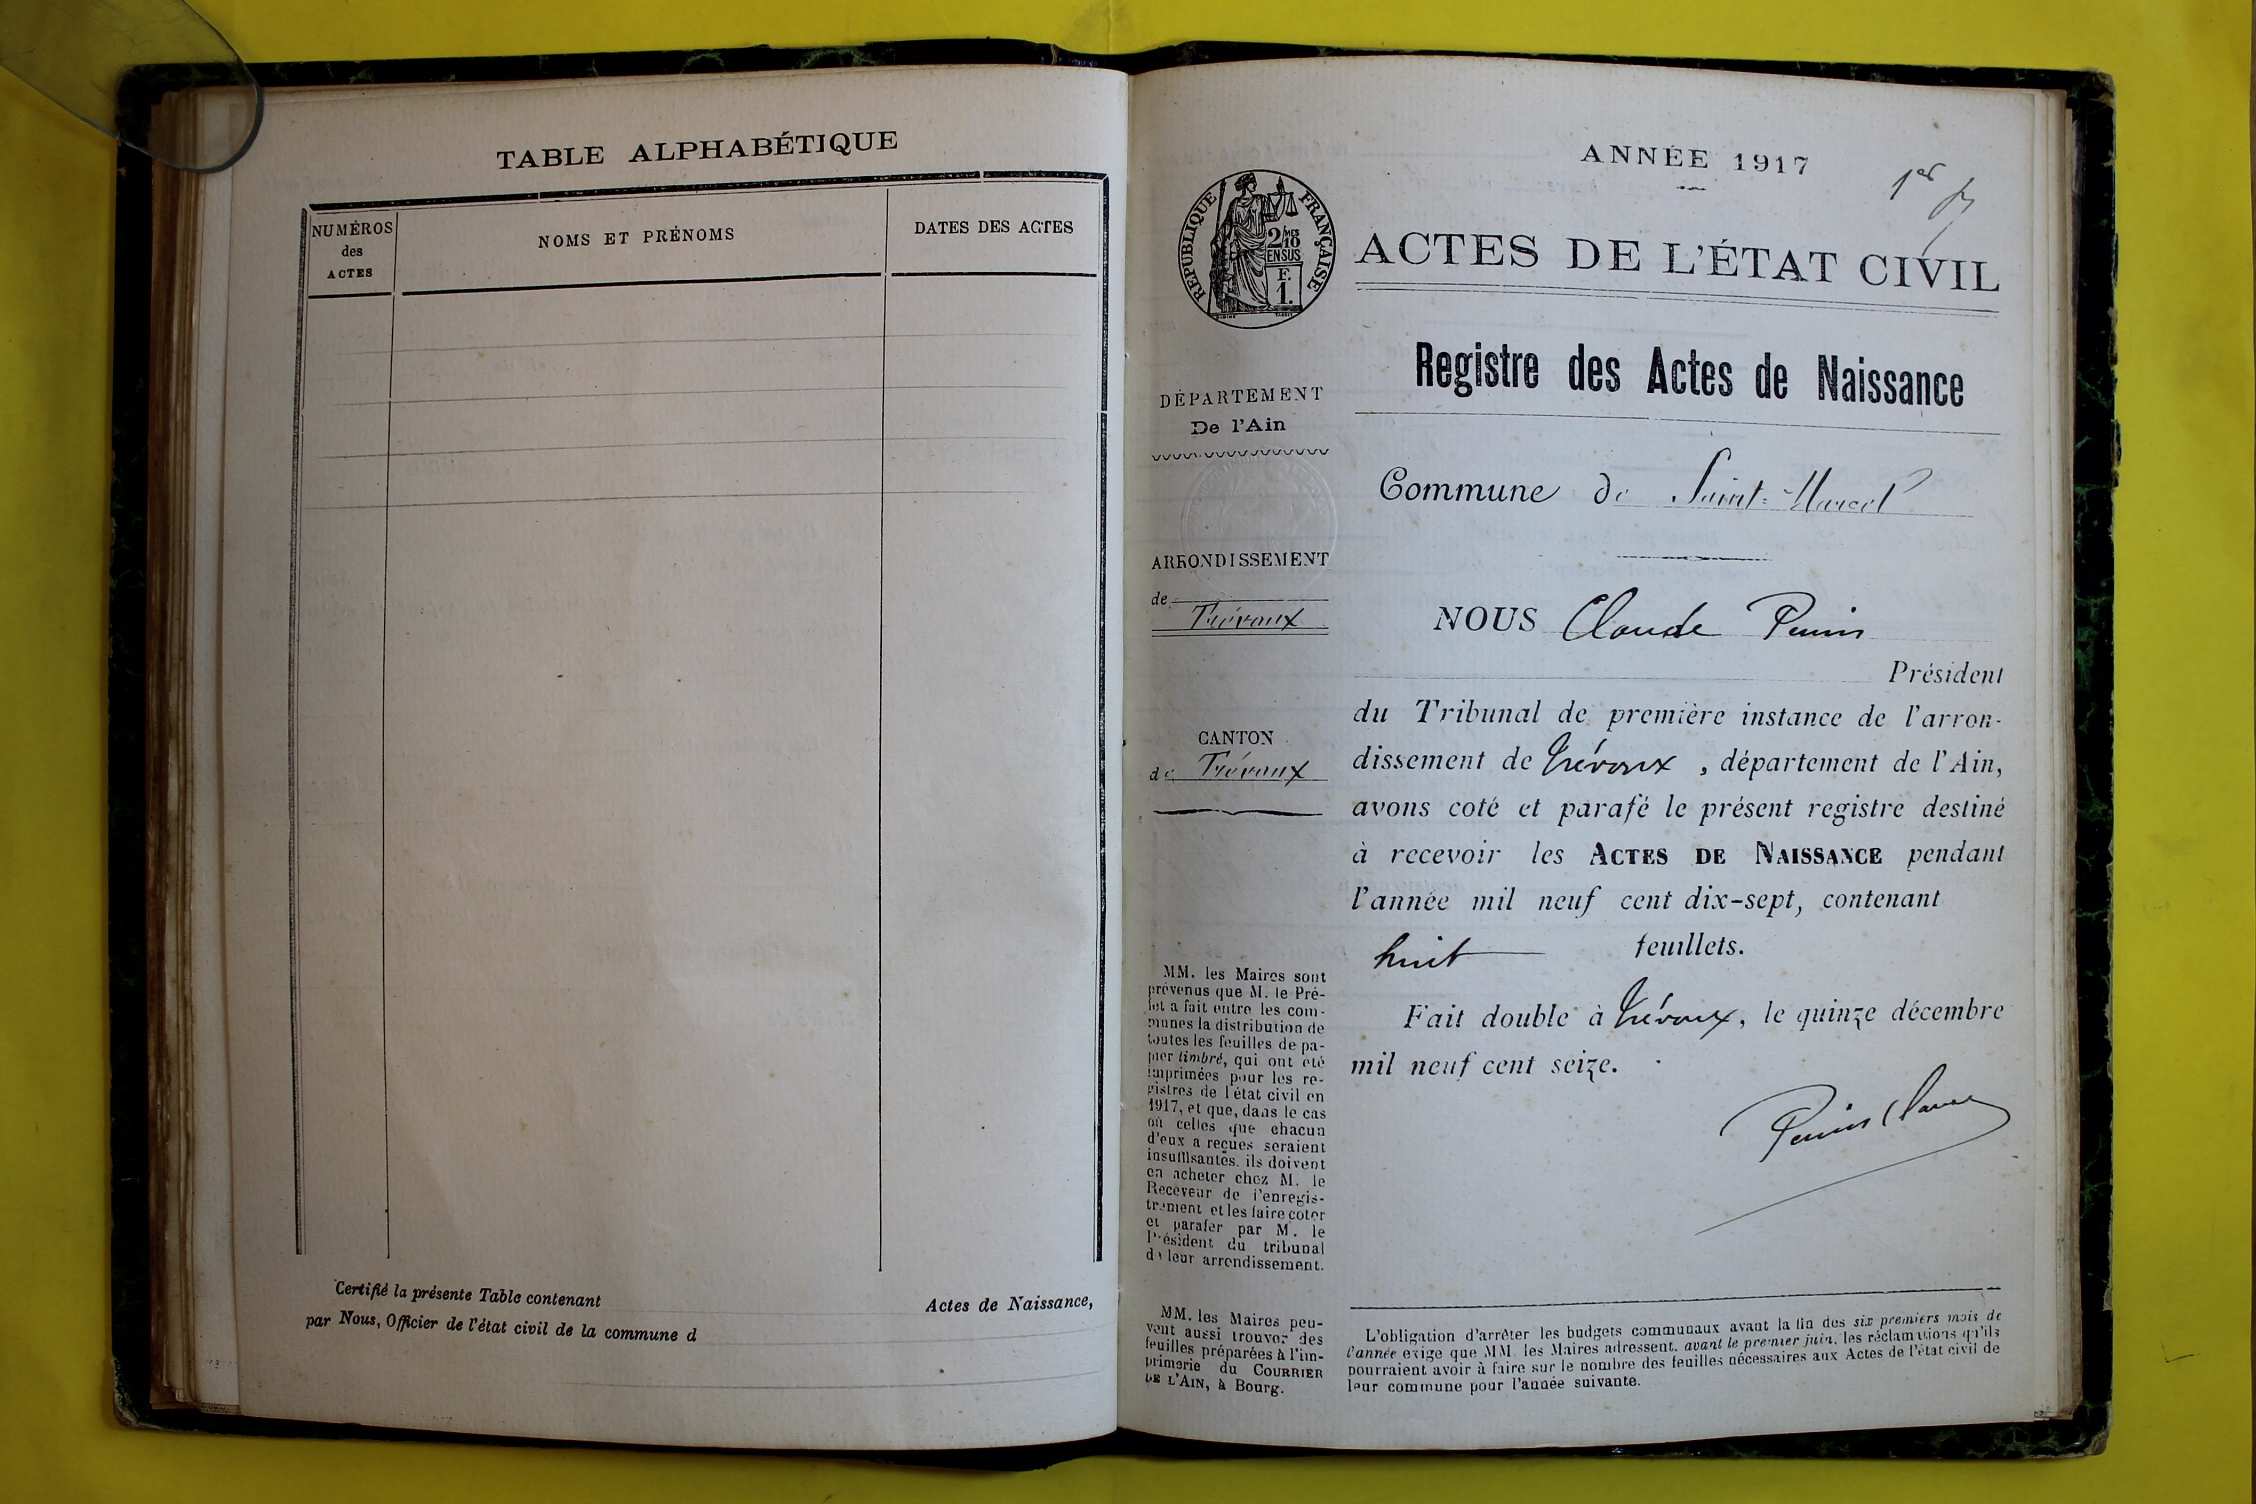 TABLE ALPHABÉTIQUE
NUMÉROS
des
ACTES
NOMS ET PRÉNOMS
DATES DES ACTES
Certifié la présente Table contenant Actes de Naissance,
par Nous, Officier de l'état civil de la commune d
ANNÉE 1917
1er
RÉPUBLIQUE FRANÇAISE
2/10 MES
EN SUS
F.
1.
ACTES DE L'ÉTAT CIVIL
Registre des Actes de Naissance
DÉPARTEMENT
De l'Ain
Commune de Saint-Marcel
ARRONDISSEMENT
de
Trévoux
CANTON
de Trévoux
NOUS Claude
Président
du Tribunal de première instance de l'arron-
dissement de Trévoux, département de l'Ain,
avons coté et parafé le présent registre destiné
à recevoir les ACTES DE NAISSANCE pendant
l'année mil neuf cent dix-sept, contenant
huit feuillets.
Fait double à Trévoux, le quinze décembre
mil neuf cent seize.
MM. les Maires sont
prévenus que M. le Pré-
fet a fait entre les com-
munes la distribution de
toutes les feuilles de pa-
pier timbré, qui ont été
imprimées pour les re-
gistres de l'état civil en
1917, et que, dans le cas
où celles que chacun
d'eux a reçues seraient
insuffisantes, ils doivent
en acheter chez M. le
Receveur de l'enregis-
trement et les faire coter
et parafer par M. le
Président du tribunal
de leur arrondissement.
MM. les Maires peu-
vent aussi trouver des
feuilles préparées à l'im-
primerie du COURRIER
DE L'AIN, à Bourg.
L'obligation d'arrêter les budgets communaux avant la fin des six premiers mois de
l'année exige que MM. les Maires adressent, avant le premier juin, les réclamations qu'ils
pourraient avoir à faire sur le nombre des feuilles nécessaires aux Actes de l'état civil de
leur commune pour l'année suivante.